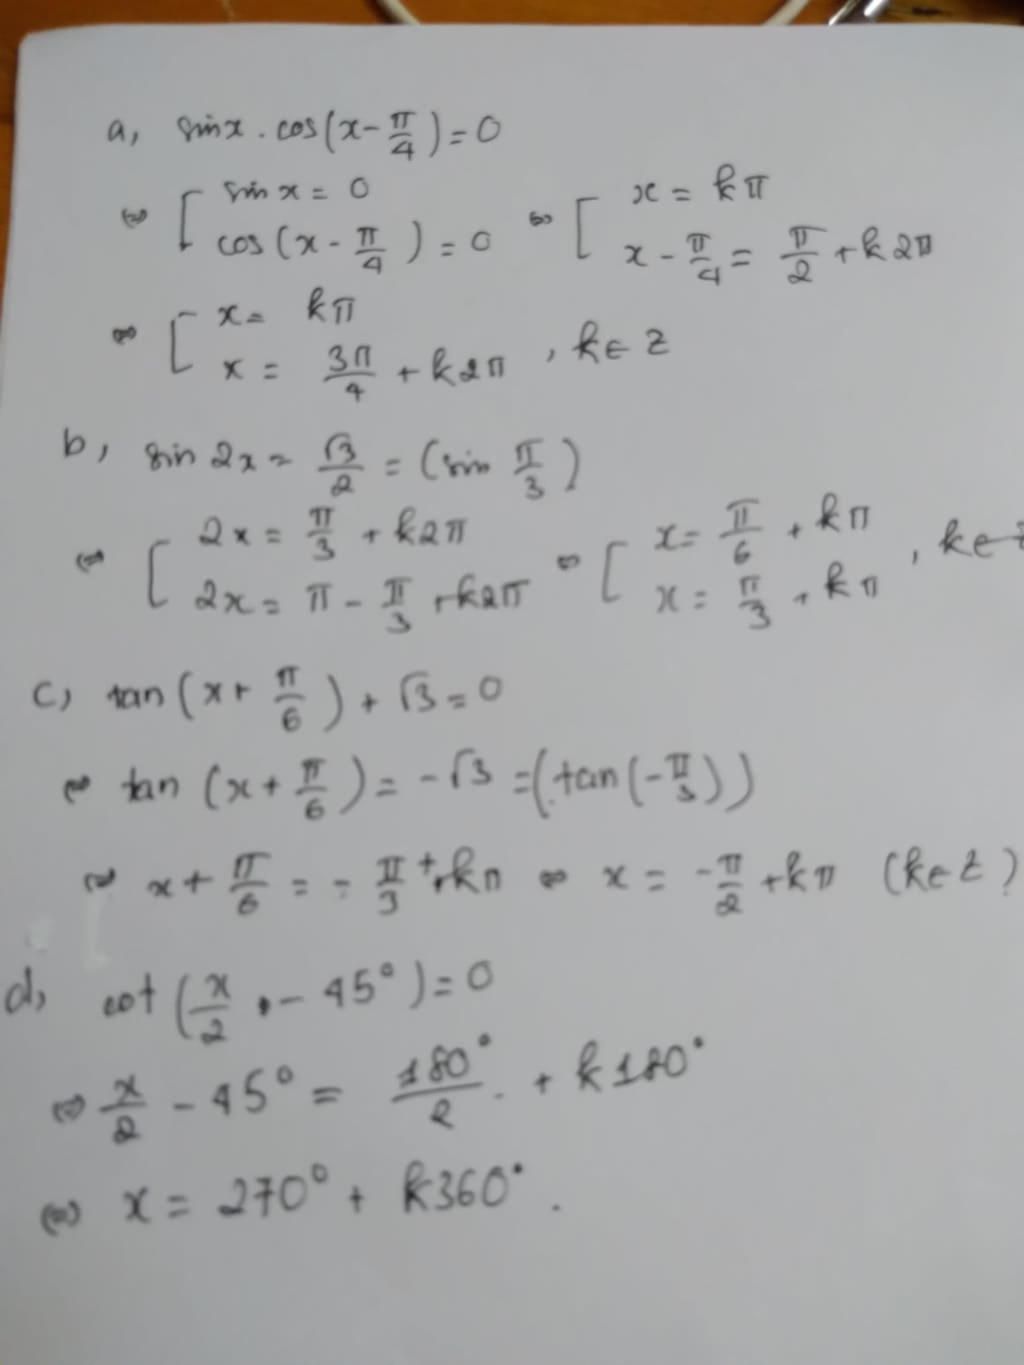 a, sin x . cos(x - π/4) = 0
⇔ [ sin x = 0 ⇔ [ x = kπ
cos(x - π/4) = 0 x - π/4 = π/2 + k2π
⇔ [ x = kπ
x = 3π/4 + k2π , k∈Z
b, sin 2x = √3/2 = (sin π/3)
⇔ [ 2x = π/3 + k2π ⇔ [ x = π/6 + kπ , k∈Z
2x = π - π/3 + k2π x = π/3 + kπ
c, tan(x + π/6) + √3 = 0
⇔ tan(x + π/6) = -√3 = (tan(-π/3))
⇔ x + π/6 = -π/3 + kπ ⇔ x = -π/2 + kπ (k∈Z)
d, cot(x/2 - 45°) = 0
⇔ x/2 - 45° = 180°/2 + k180°
⇔ x = 270° + k360°.